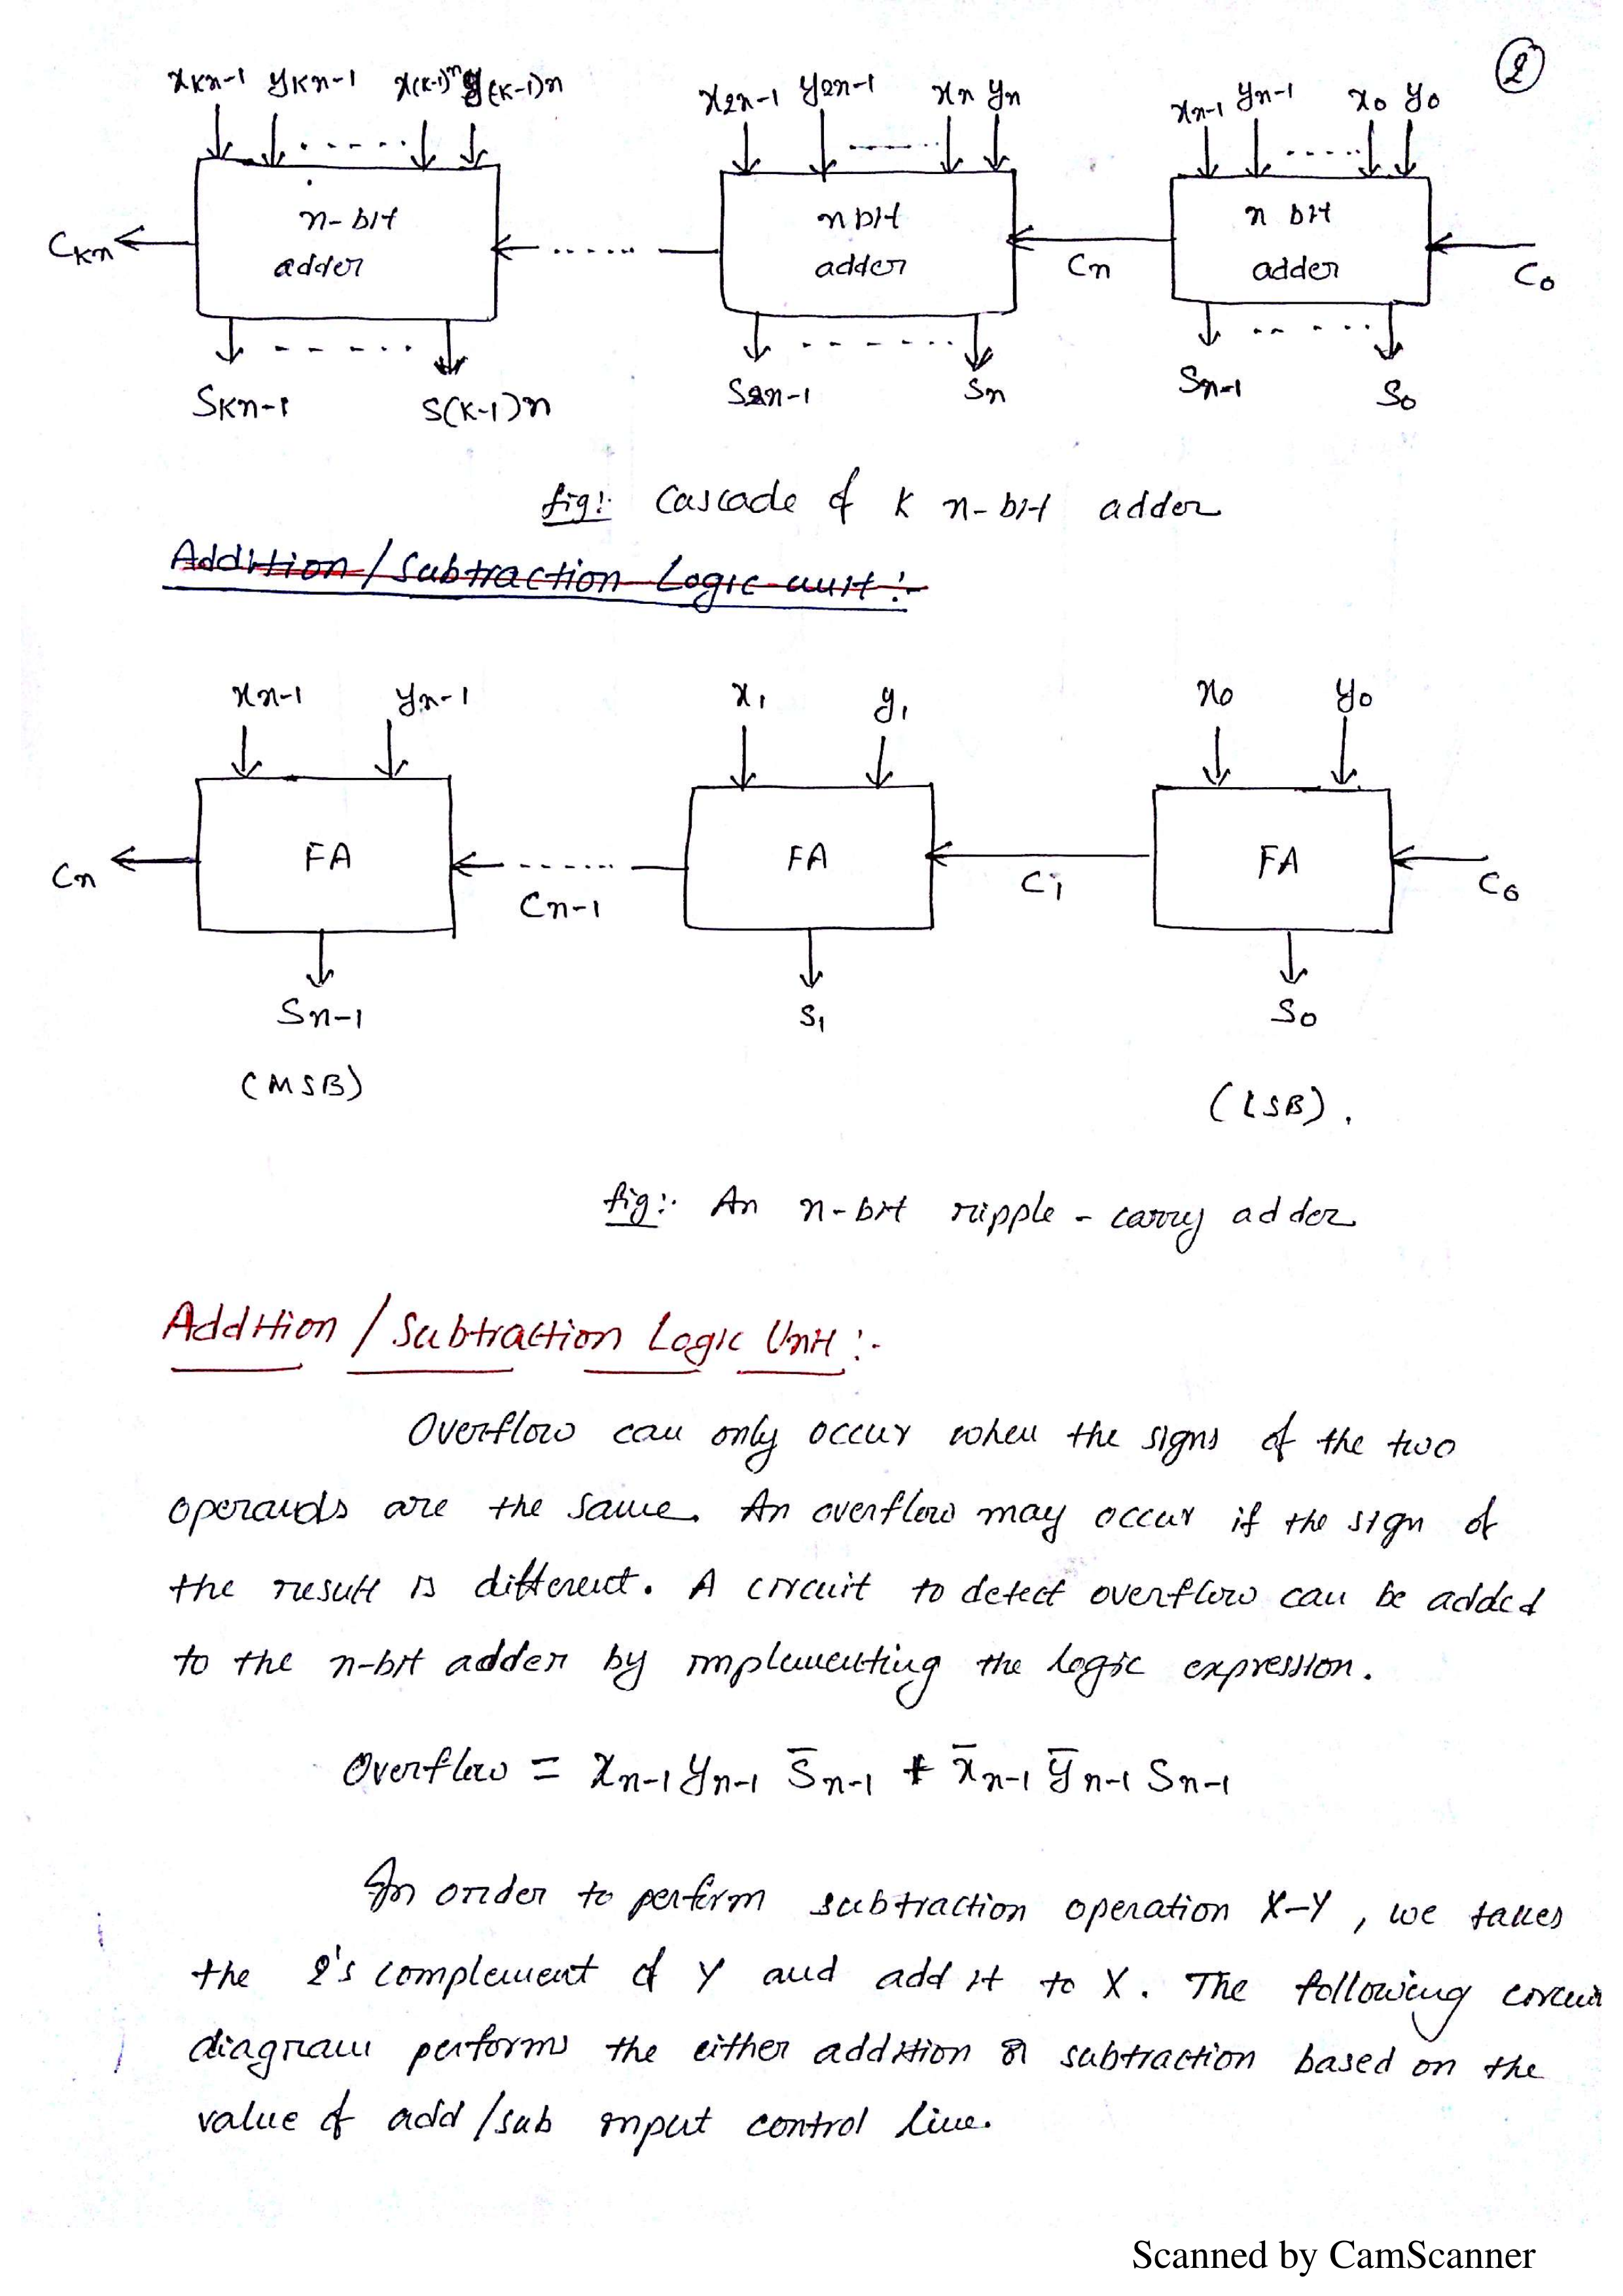 2
xKn-1 yKn-1 x(K-1)n y(K-1)n x2n-1 y2n-1 xn yn xn-1 yn-1 x0 y0
n-bit adder n bit adder n bit adder
CKn Cn C0
SKn-1 S(K-1)n S2n-1 Sn Sn-1 S0
fig:- Cascade of K n-bit adder
Addition / Subtraction Logic unit :-
xn-1 yn-1 x1 y1 x0 y0
FA FA FA
Cn Cn-1 C1 C0
Sn-1 S1 S0
(MSB) (LSB).
fig:- An n-bit ripple - carry adder
Addition / Subtraction Logic Unit :-
Overflow can only occur when the signs of the two
operands are the same. An overflow may occur if the sign of
the result is different. A circuit to detect overflow can be added
to the n-bit adder by implementing the logic expression.
Overflow = xn-1 yn-1 S̅n-1 + x̅n-1 y̅n-1 Sn-1
In order to perform subtraction operation X-Y, we takes
the 2's complement of Y and add it to X. The following circuit
diagram performs the either addition or subtraction based on the
value of add /sub input control line.
Scanned by CamScanner